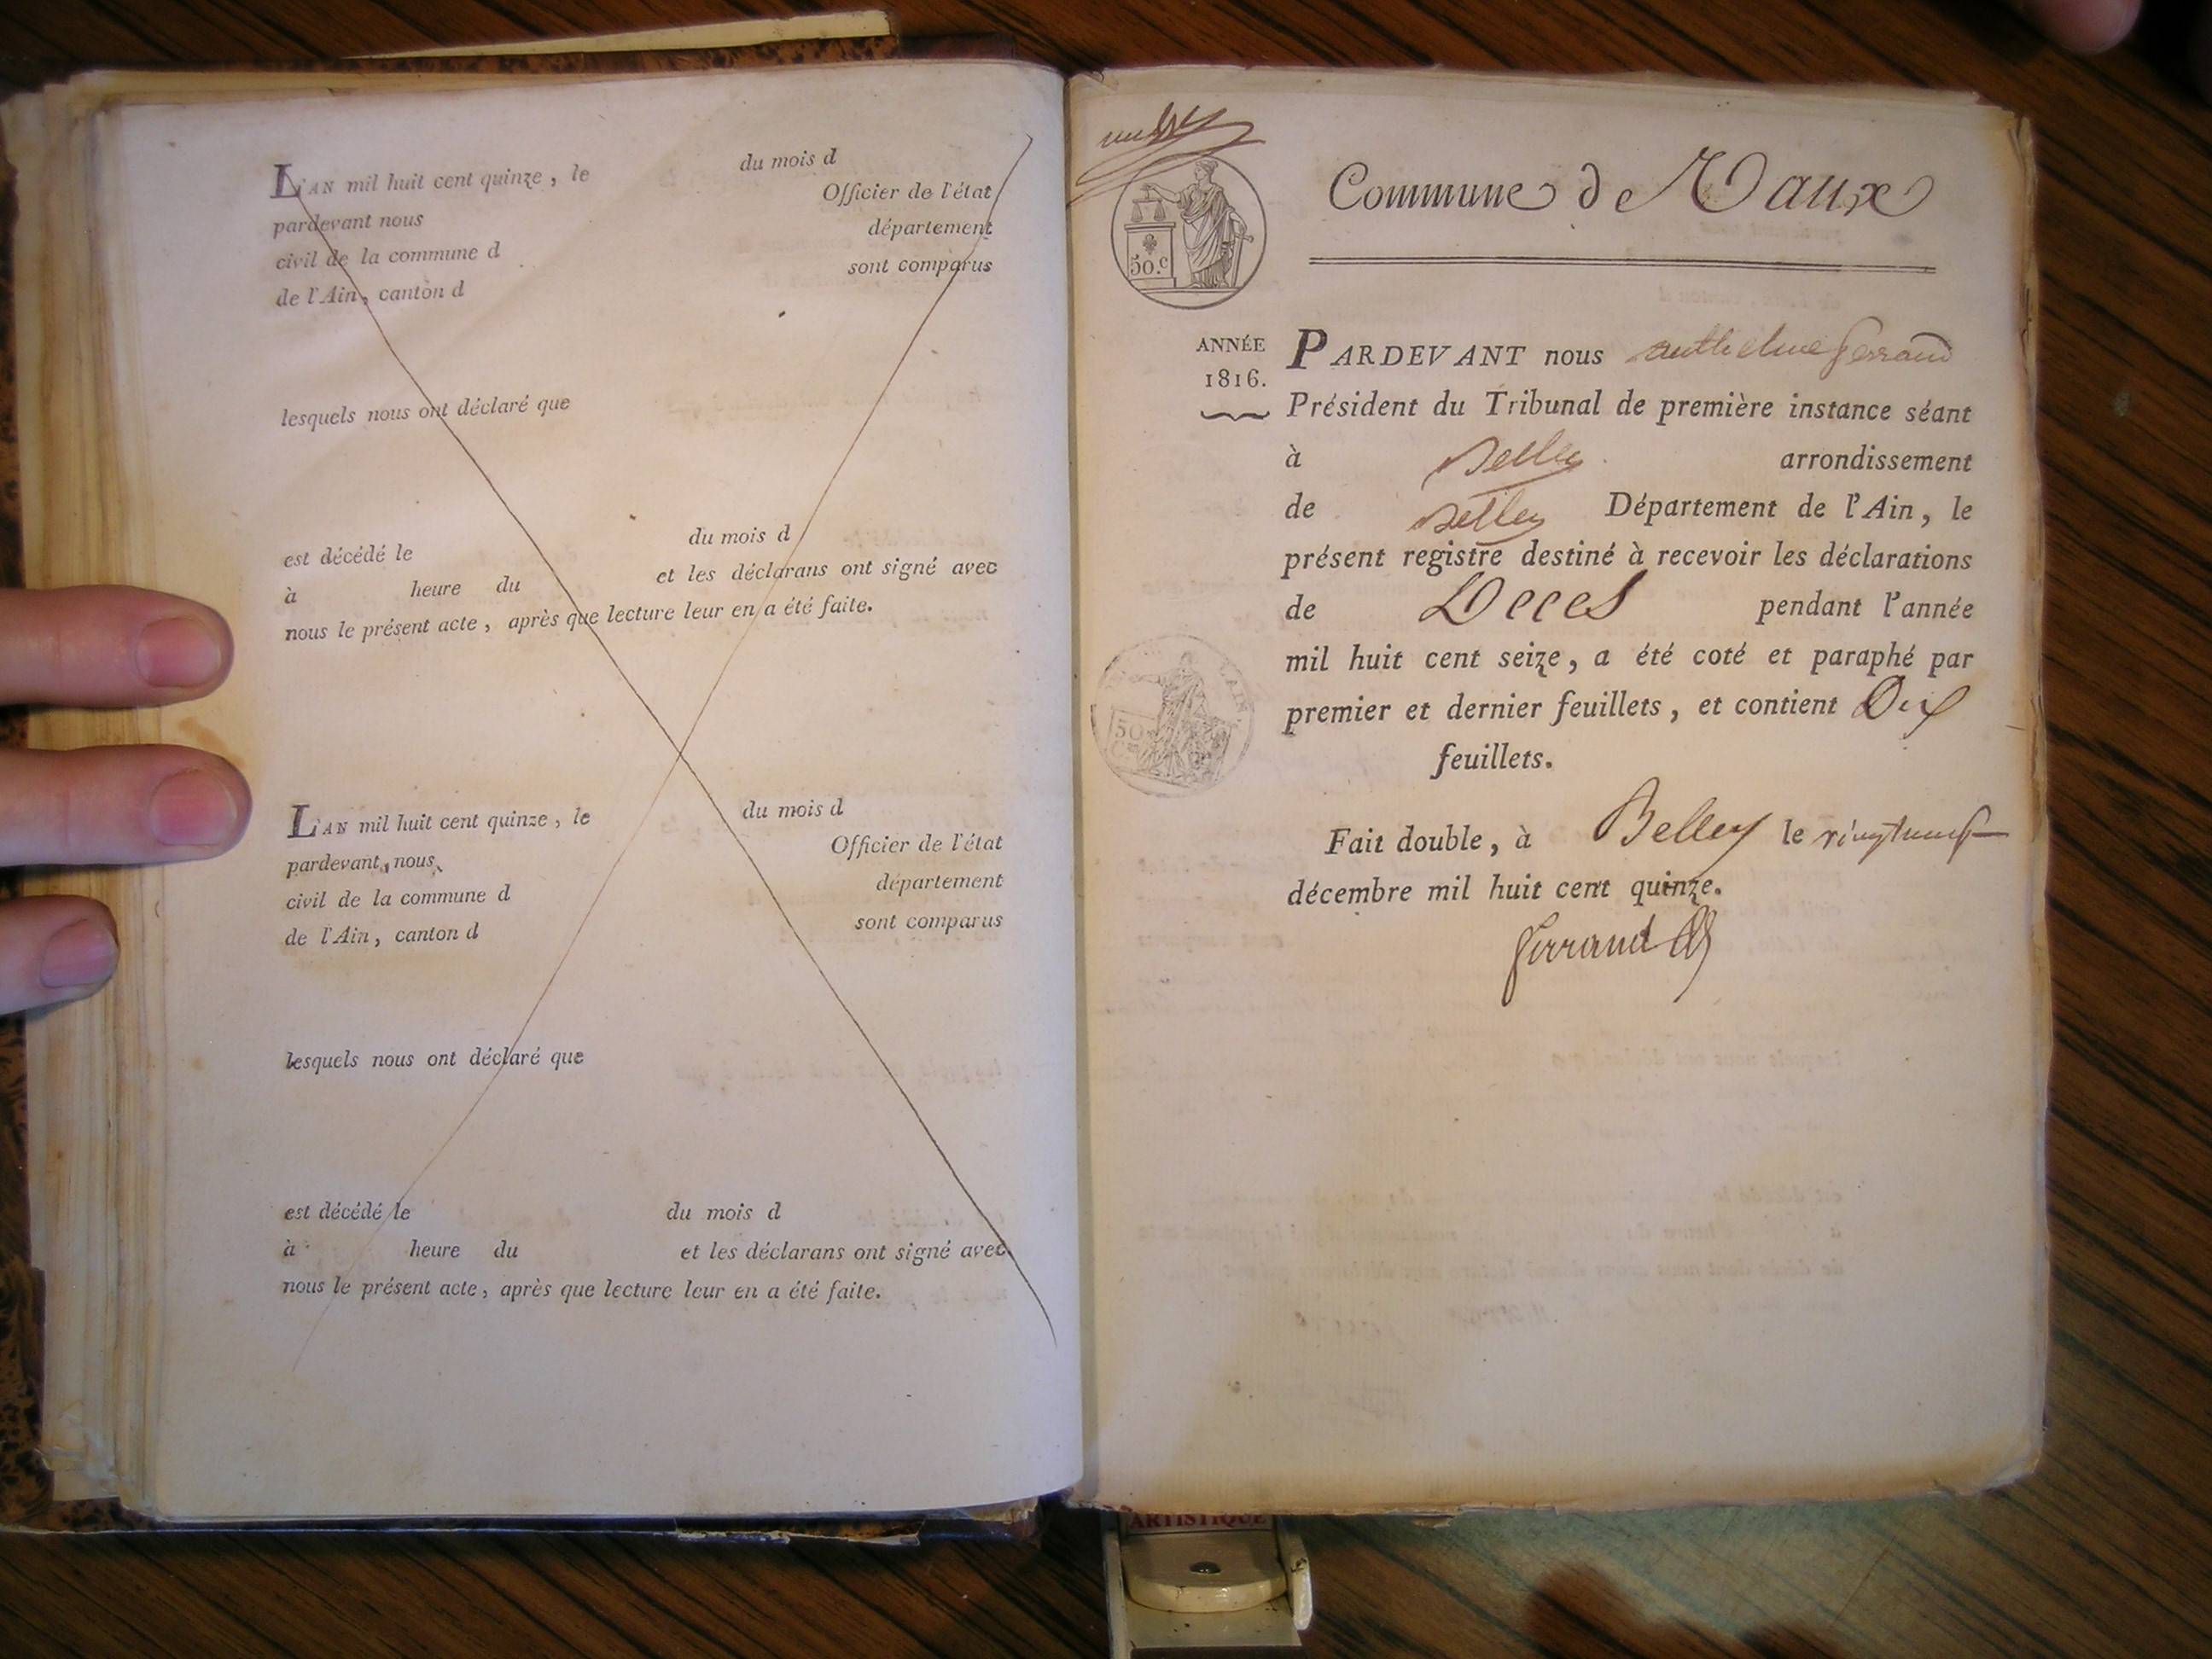 L'AN mil huit cent quinze, le du mois d
pardevant nous Officier de l'état
civil de la commune d département
de l'Ain, canton d sont comparus
lesquels nous ont déclaré que
est décédé le du mois d
à heure du et les déclarans ont signé avec
nous le présent acte, après que lecture leur en a été faite.
L'AN mil huit cent quinze, le du mois d
pardevant nous Officier de l'état
civil de la commune d département
de l'Ain, canton d sont comparus
lesquels nous ont déclaré que
est décédé le du mois d
à heure du et les déclarans ont signé avec
nous le présent acte, après que lecture leur en a été faite.
50.c
Commune de Vaux
ANNÉE
1816.
PARDEVANT nous anthelme ferrand
Président du Tribunal de première instance séant
à Belley arrondissement
de Belley Département de l'Ain, le
présent registre destiné à recevoir les déclarations
de Deces pendant l'année
mil huit cent seize, a été coté et paraphé par
premier et dernier feuillets, et contient Dix
feuillets.
50
Fait double, à Belley le vingtneuf
décembre mil huit cent quinze.
ferrand
ARTISTIQUE